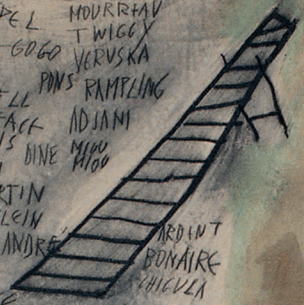 DEL MOURRIAU
TWIGGY
GOGO VERUSKA
PONS RAMPLING
ELL ADJANI
FACE MIOU
IS DINE MIOU
RTIN
LEIN ARDENT
ANDRÉ BONAIRE
CHIGULA